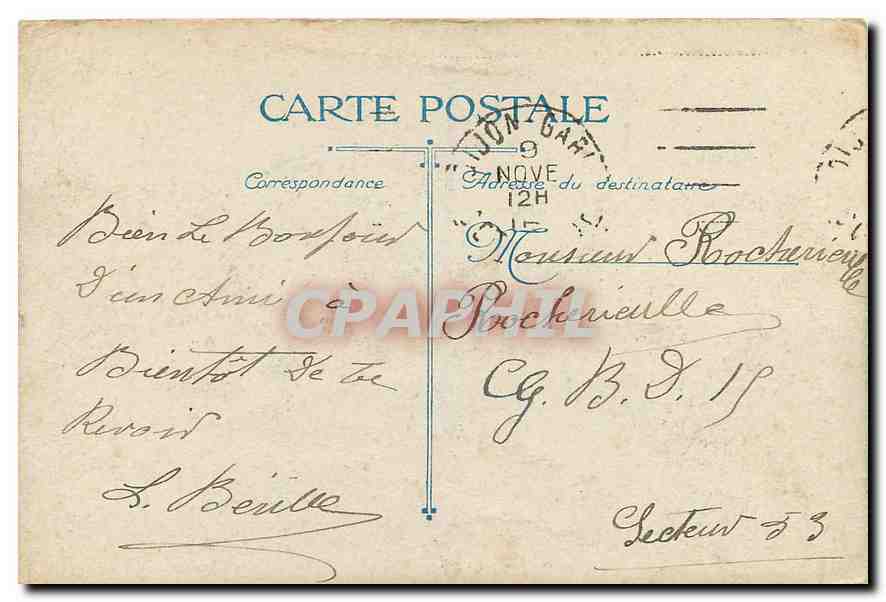 CARTE POSTALE
DIJON-GARE
9
NOVE
12H
Correspondance
Adresse du destinataire
Bien Le Bonjour
D'un Ami à
Bientôt De te
Revoir
L. Béville
Monsieur
Rocherieulle
B. D. 15
Secteur 53
CPAPHIL